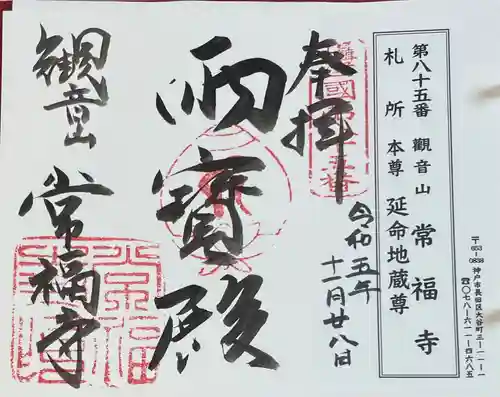 第八十五番 觀音山 常福寺
札所本尊 延命地蔵尊
〒653-0838 神戸市長田区大谷町三-一一-一
☎〇七八-六一一-四六八五
奉拝
令和五年
十一月廿八日
雨寶殿
觀音山
常福寺